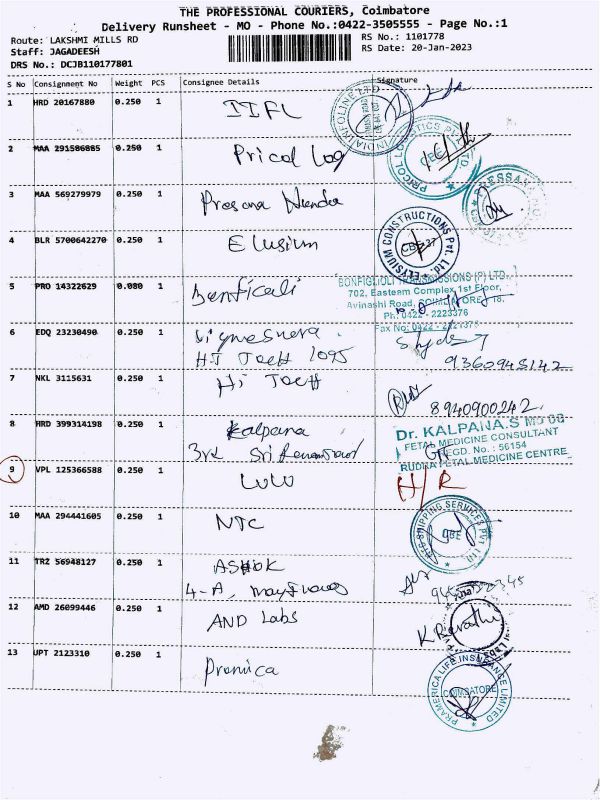 THE PROFESSIONAL COURIERS, Coimbatore
Delivery Runsheet - MO - Phone No.:0422-3505555 - Page No.:1
Route: LAKSHMI MILLS RD
RS No.: 1101778
Staff: JAGADEESH
RS Date: 20-Jan-2023
DRS No.: DCJB110177801
S No Consignment No Weight PCS Consignee Details Signature
1 HRD 20167880 0.250 1 IIFL
2 MAA 291586885 0.250 1 Pricol Log
PRICOL LOGISTICS PVT LTD
CBE
3 MAA 569279979 0.250 1
4 BLR 5700642270 0.250 1 Elusium
ELYSIUM CONSTRUCTIONS Pvt. Ltd.
CBE-37
5 PRO 14322629 0.080 1 Bonficali
BONFIGLIOLI TRANSMISSIONS (P) LTD.,
702, Eastern Complex, 1st Floor,
Avinashi Road, COIMBATORE-18.
Ph: 0422 - 2223376
Fax No: 0422 - 2221378
6 EDQ 23230490 0.250 1
HI Tech 1095
9360948142
7 NKL 3115631 0.250 1 Hi Tech
8940900242
8 HRD 399314198 0.250 1 Kalpana
3rd
Dr. KALPANA.S
FETAL MEDICINE CONSULTANT
REGD. No.: 56154
RUDRA FETAL MEDICINE CENTRE
9 VPL 125366588 0.250 1 LULU H/R
10 MAA 294441605 0.250 1 NTC
SHIPPING SERVICES PVT LTD.
CBE
11 TRZ 56948127 0.250 1 ASHOK
4-A,
12 AMD 26099446 0.250 1 AND Labs K Revathi
13 JPT 2123310 0.250 1 Pramica
PRAMERICA LIFE INSURANCE LIMITED
COIMBATORE